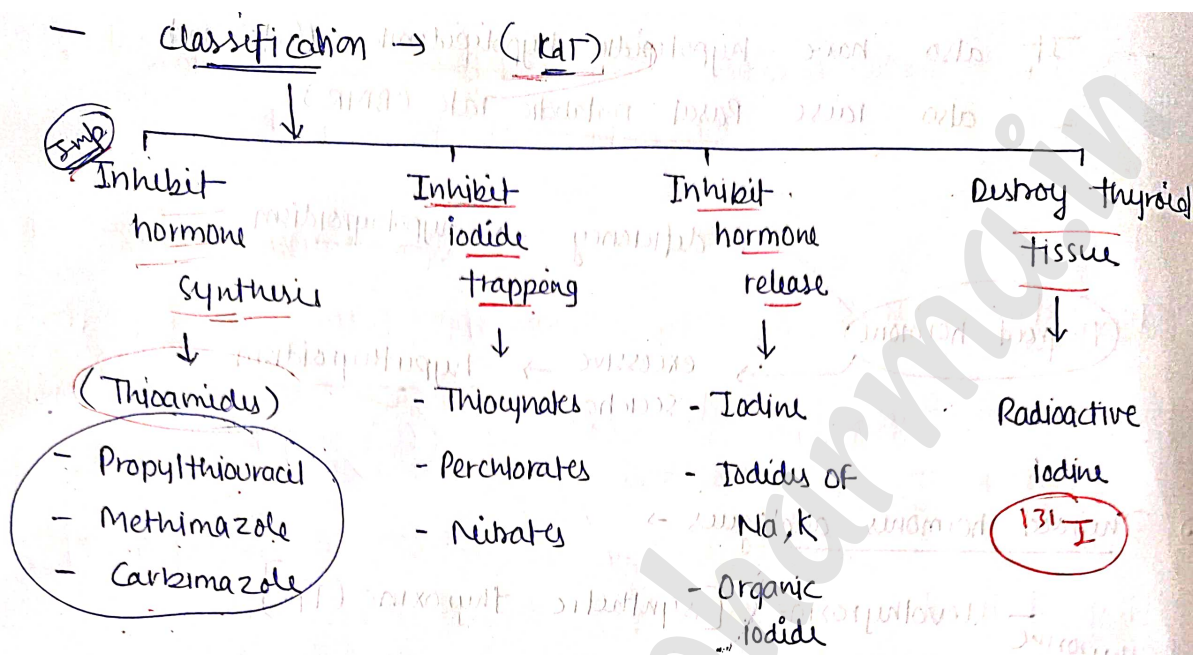 — Classification → (KdT)
Imp.
Inhibit
hormone
synthesis
(Thioamides)
- Propylthiouracil
- Methimazole
- Carbimazole
Inhibit
iodide
trapping
- Thiocynates
- Perchlorates
- Nitrates
Inhibit
hormone
release
- Iodine
- Iodides of
Na, K
- Organic
iodide
Destroy thyroid
tissue
Radioactive
iodine
131 I
pharma.in